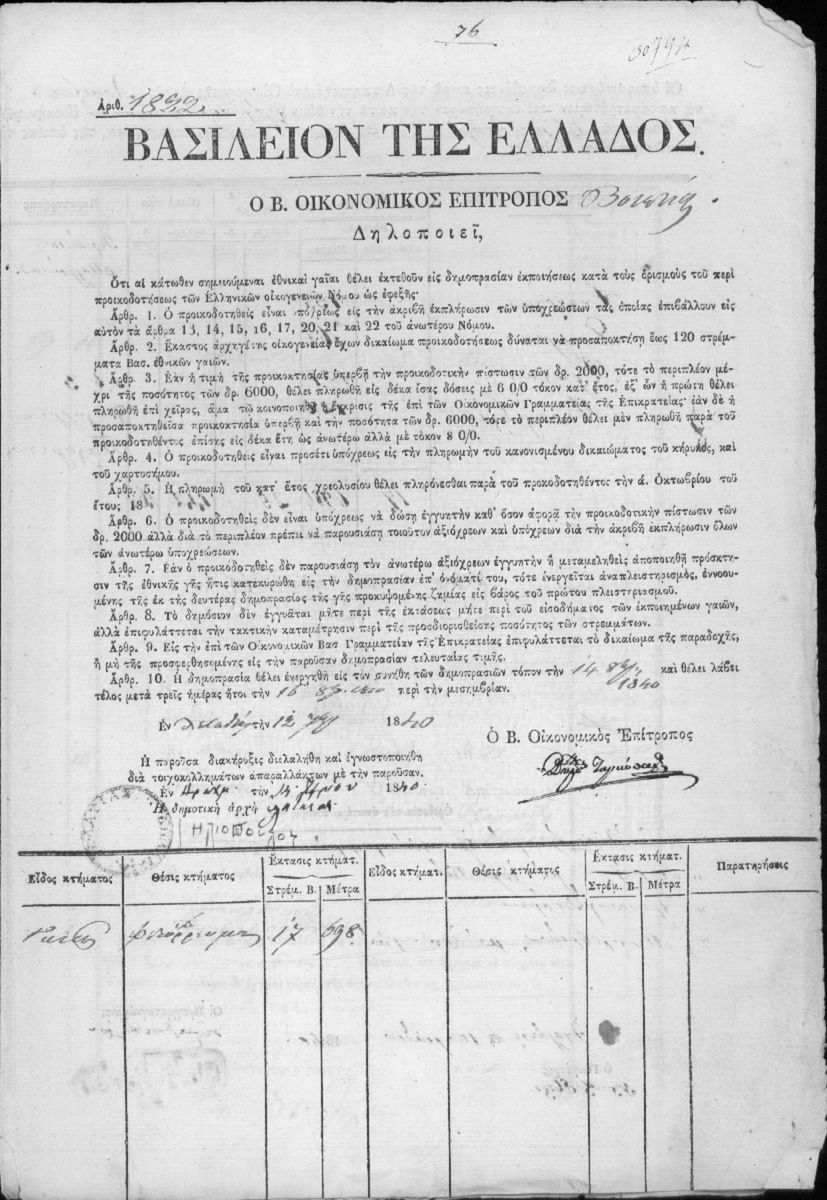 76
Ἀριθ. 1822
ΒΑΣΙΛΕΙΟΝ ΤΗΣ ΕΛΛΑΔΟΣ.
Ο Β. ΟΙΚΟΝΟΜΙΚΟΣ ΕΠΙΤΡΟΠΟΣ
Δηλοποιεῖ,
Ὅτι αἱ κάτωθεν σημειούμεναι ἐθνικαὶ γαῖαι θέλει ἐκτεθοῦν εἰς δημοπρασίαν ἐκποιήσεως κατὰ τοὺς ὁρισμοὺς τοῦ περὶ
προικοδοτήσεως τῶν Ἑλληνικῶν οἰκογενειῶν Νόμου ὡς ἐφεξῆς·
Ἄρθρ. 1. Ὁ προικοδοτηθεὶς εἶναι ὑπόχρεως εἰς τὴν ἀκριβῆ ἐκπλήρωσιν τῶν ὑποχρεώσεων τὰς ὁποίας ἐπιβάλλουν εἰς
αὐτὸν τὰ ἄρθρα 13, 14, 15, 16, 17, 20, 21 καὶ 22 τοῦ ἀνωτέρω Νόμου.
Ἄρθρ. 2. Ἕκαστος ἀρχηγέτης οἰκογενείας ἔχων δικαίωμα προικοδοτήσεως δύναται νὰ προσαποκτήσῃ ἕως 120 στρέμ-
ματα Βασ. ἐθνικῶν γαιῶν.
Ἄρθρ. 3. Ἐὰν ἡ τιμὴ τῆς προικοκτησίας ὑπερβῇ τὴν προικοδοτικὴν πίστωσιν τῶν δρ. 2000, τότε τὸ περιπλέον μέ-
χρι τῆς ποσότητος τῶν δρ. 6000, θέλει πληρωθῆ εἰς δέκα ἴσας δόσεις μὲ 6 0/0 τόκον κατ᾽ ἔτος, ἐξ ὧν ἡ πρώτη θέλει
πληρωθῆ ἐπὶ χεῖρας, ἅμα τῷ κοινοποιηθῇ ἡ ἔγκρισις τῆς ἐπὶ τῶν Οἰκονομικῶν Γραμματείας τῆς Ἐπικρατείας· ἐὰν δὲ ἡ
προσαποκτηθεῖσα προικοκτησία ὑπερβῇ καὶ τὴν ποσότητα τῶν δρ. 6000, τότε τὸ περιπλέον θέλει μὲν πληρωθῆ παρὰ τοῦ
προικοδοτηθέντος ἐπίσης εἰς δέκα ἔτη ὡς ἀνωτέρω ἀλλὰ μὲ τόκον 8 0/0.
Ἄρθρ. 4. Ὁ προικοδοτηθεὶς εἶναι προσέτι ὑπόχρεως εἰς τὴν πληρωμὴν τοῦ κανονισμένου δικαιώματος τοῦ κήρυκος, καὶ
τοῦ χαρτοσήμου.
Ἄρθρ. 5. Ἡ πληρωμὴ τοῦ κατ᾽ ἔτος χρεολυσίου θέλει πληρόνεσθαι παρὰ τοῦ προκοδοτηθέντος τὴν ά. Ὀκτωβρίου τοῦ
ἔτους 18
Ἄρθρ. 6. Ὁ προικοδοτηθεὶς δὲν εἶναι ὑπόχρεως νὰ δώσῃ ἐγγυητὴν καθ᾽ ὅσον ἀφορᾷ τὴν προικοδοτικὴν πίστωσιν τῶν
δρ. 2000 ἀλλὰ διὰ τὸ περιπλέον πρέπει νὰ παρουσιάσῃ τοιοῦτον ἀξιόχρεων καὶ ὑπόχρεων διὰ τὴν ἀκριβῆ ἐκπλήρωσιν ὅλων
τῶν ἀνωτέρω ὑποχρεώσεων.
Ἄρθρ. 7. Ἐὰν ὁ προικοδοτηθεὶς δὲν παρουσιάσῃ τὸν ἀνωτέρω ἀξιόχρεων ἐγγυητὴν ἢ μεταμεληθεὶς ἀποποιηθῇ πρόσκτη-
σιν τῆς ἐθνικῆς γῆς ἥτις κατεκυρώθη εἰς τὴν δημοπρασίαν ἐπ᾽ ὀνόματί του, τότε ἐνεργεῖται ἀναπλειστηρισμός, ἐννοου-
μένης τῆς ἐκ τῆς δευτέρας δημοπρασίας τῆς γῆς προκυψομένης ζημίας εἰς βάρος τοῦ πρώτου πλειστηριασμοῦ.
Ἄρθρ. 8. Τὸ δημόσιον δὲν ἐγγυᾶται μήτε περὶ τῆς ἐκτάσεως μήτε περὶ τοῦ εἰσοδήματος τῶν ἐκποιημένων γαιῶν,
ἀλλὰ ἐπιφυλάττεται τὴν τακτικὴν καταμέτρησιν περὶ τῆς προσδιορισθείσης ποσότητος τῶν στρεμμάτων.
Ἄρθρ. 9. Εἰς τὴν ἐπὶ τῶν Οἰκονομικῶν Βασ Γραμματείαν τῆς Ἐπικρατείας ἐπιφυλάττεται τὸ δικαίωμα τῆς παραδοχῆς,
ἢ μὴ τῆς προσφερθησομένης εἰς τὴν παροῦσαν δημοπρασίαν τελευταίας τιμῆς.
Ἄρθρ. 10. Ἡ δημοπρασία θέλει ἐνεργηθῆ εἰς τὸν συνήθη τῶν δημοπρασιῶν τόπον τὴν 14 καὶ θέλει λάβει
1840
τέλος μετὰ τρεῖς ἡμέρας ἤτοι τὴν 16 περὶ τὴν μεσημβρίαν.
Ἐν τὴν 12 1840
Ὁ Β. Οἰκονομικὸς Ἐπίτροπος
Ἡ παροῦσα διακήρυξις διελαλήθη καὶ ἐγνωστοποιήθη
διὰ τοιχοκολλημάτων ἀπαραλλάκτων μὲ τὴν παροῦσαν.
Ἐν τὴν 1840
Ἡ δημοτικὴ ἀρχὴ
Ηλιοπουλος
Εἶδος κτήματος Θέσις κτήματος Ἔκτασις κτήματ. Εἶδος κτήματ. Θέσις κτήματις Ἔκτασις κτήματ. Παρατηρήσεις
Στρέμ. Β. Μέτρα Στρέμ. Β. Μέτρα
17 698